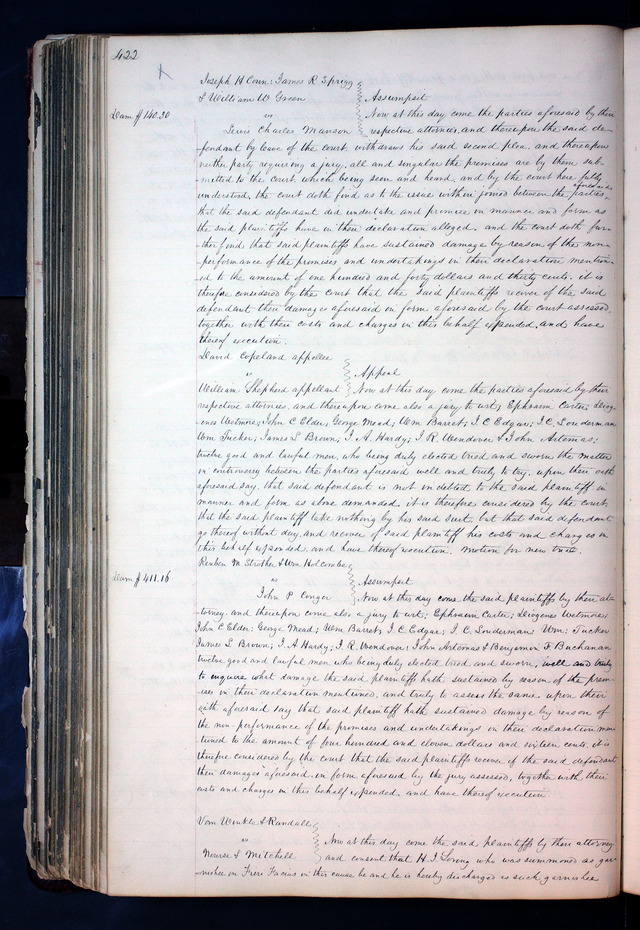 422
Joseph H Conn: James R Sprigg
& William W Green } Assumpsit
Dam $140.30 vs Now at this day come the parties aforesaid by their
Lewis Charles Manson respective attornies, and thereupon the said de-
fendant by leave of the court withdraws his said second plea. and thereupon
neither party requiring a jury, all and singular the premises are by them sub-
mitted to the court which being seen and heard, and by the court here fully
understood, the court doth find as to the issue within joined between the parties aforesaid
that the said defendant did undertake and promise in manner and form as
the said plaintiffs have in their declaration alleged. and the court doth fur-
ther find that said plaintiffs have sustained damage by reason of the non-
performance of the promises and undertakings in their declaration mention-
ed to the amount of one hundred and forty dollars and thirty cents. it is
therefore considered by the court that the said plaintiffs recover of the said
defendant their damages aforesaid in form aforesaid by the court assessed,
together with their costs and charges in this behalf expended, and have
thereof execution.
David Copeland appellee
vs } Appeal
William Shepherd appellant Now at this day come the parties aforesaid by their
respective attornies, and thereupon come also a jury to wit; Ephraim Carter, Diog-
enes Wetmore; John C Elder, George Mead; Wm Barret; J. C Edgar; J. C. Louderman
Wm Tucker; James L Brown; J. A. Hardy; J. R Vendover & John Artomas;
twelve good and lawful men, who being duly elected tried and sworn the matter
in controversy between the parties aforesaid well and truly to try, upon their oath
aforesaid say, that said defendant is not indebted to the said plaintiff in
manner and form as above demanded, it is therefore considered by the court
that the said plaintiff take nothing by his said suit. but that said defendant
go thereof without day, and recover of said plaintiff his costs and charges in
this behalf expended, and have thereof execution. Motion for new trial.
Reuben M Strothe & Wm Holcombe
Dam $411.16 vs } Assumpsit
John P Conger Now at this day come the said plaintiffs by their at-
torney, and thereupon come also a jury to wit; Ephraim Carter; Diogenes Wetmore;
John C Elder; George Mead; Wm Barret; J. C Edgar; J. C. Louderman Wm: Tucker
James L Brown; J. A Hardy; J. R. Vendover; John Artomas & Benjamin F Buchanan
twelve good and lawful men who being duly elected tried and sworn, well and truly
to inquire what damage the said plaintiff hath sustained by reason of the prem-
ises in their declaration mentioned, and truly to assess the same upon their
oath aforesaid say that said plaintiff hath sustained damage by reason of
the non-performance of the promises and undertakings in their declaration men-
tioned to the amount of four hundred and eleven dollars and sixteen cents. it is
therefore considered by the court that the said plaintiffs recover of the said defendant
their damages aforesaid in form aforesaid by the jury assessed, together with their
costs and charges in this behalf expended. and have thereof execution
Van Winkle & Randall
vs } Now at this day come the said plaintiffs by their attorney
Nourse & Mitchell and consent that H. J Loring who was summoned as gar-
nishee on Fieri Facias in this cause be and he is hereby discharged as such garnishee